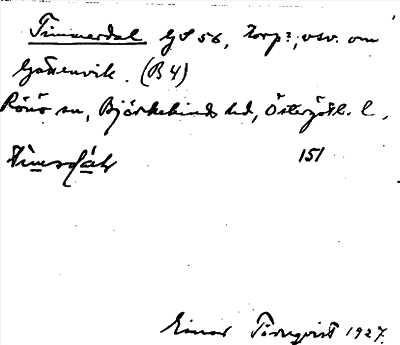 Timmerdal GS 56, torp?, osv. om
Gåtenvik. (B4)
Rönö sn, Björkekinds hd, Östergötl. l.
151
Einar Törnqvist 1927.